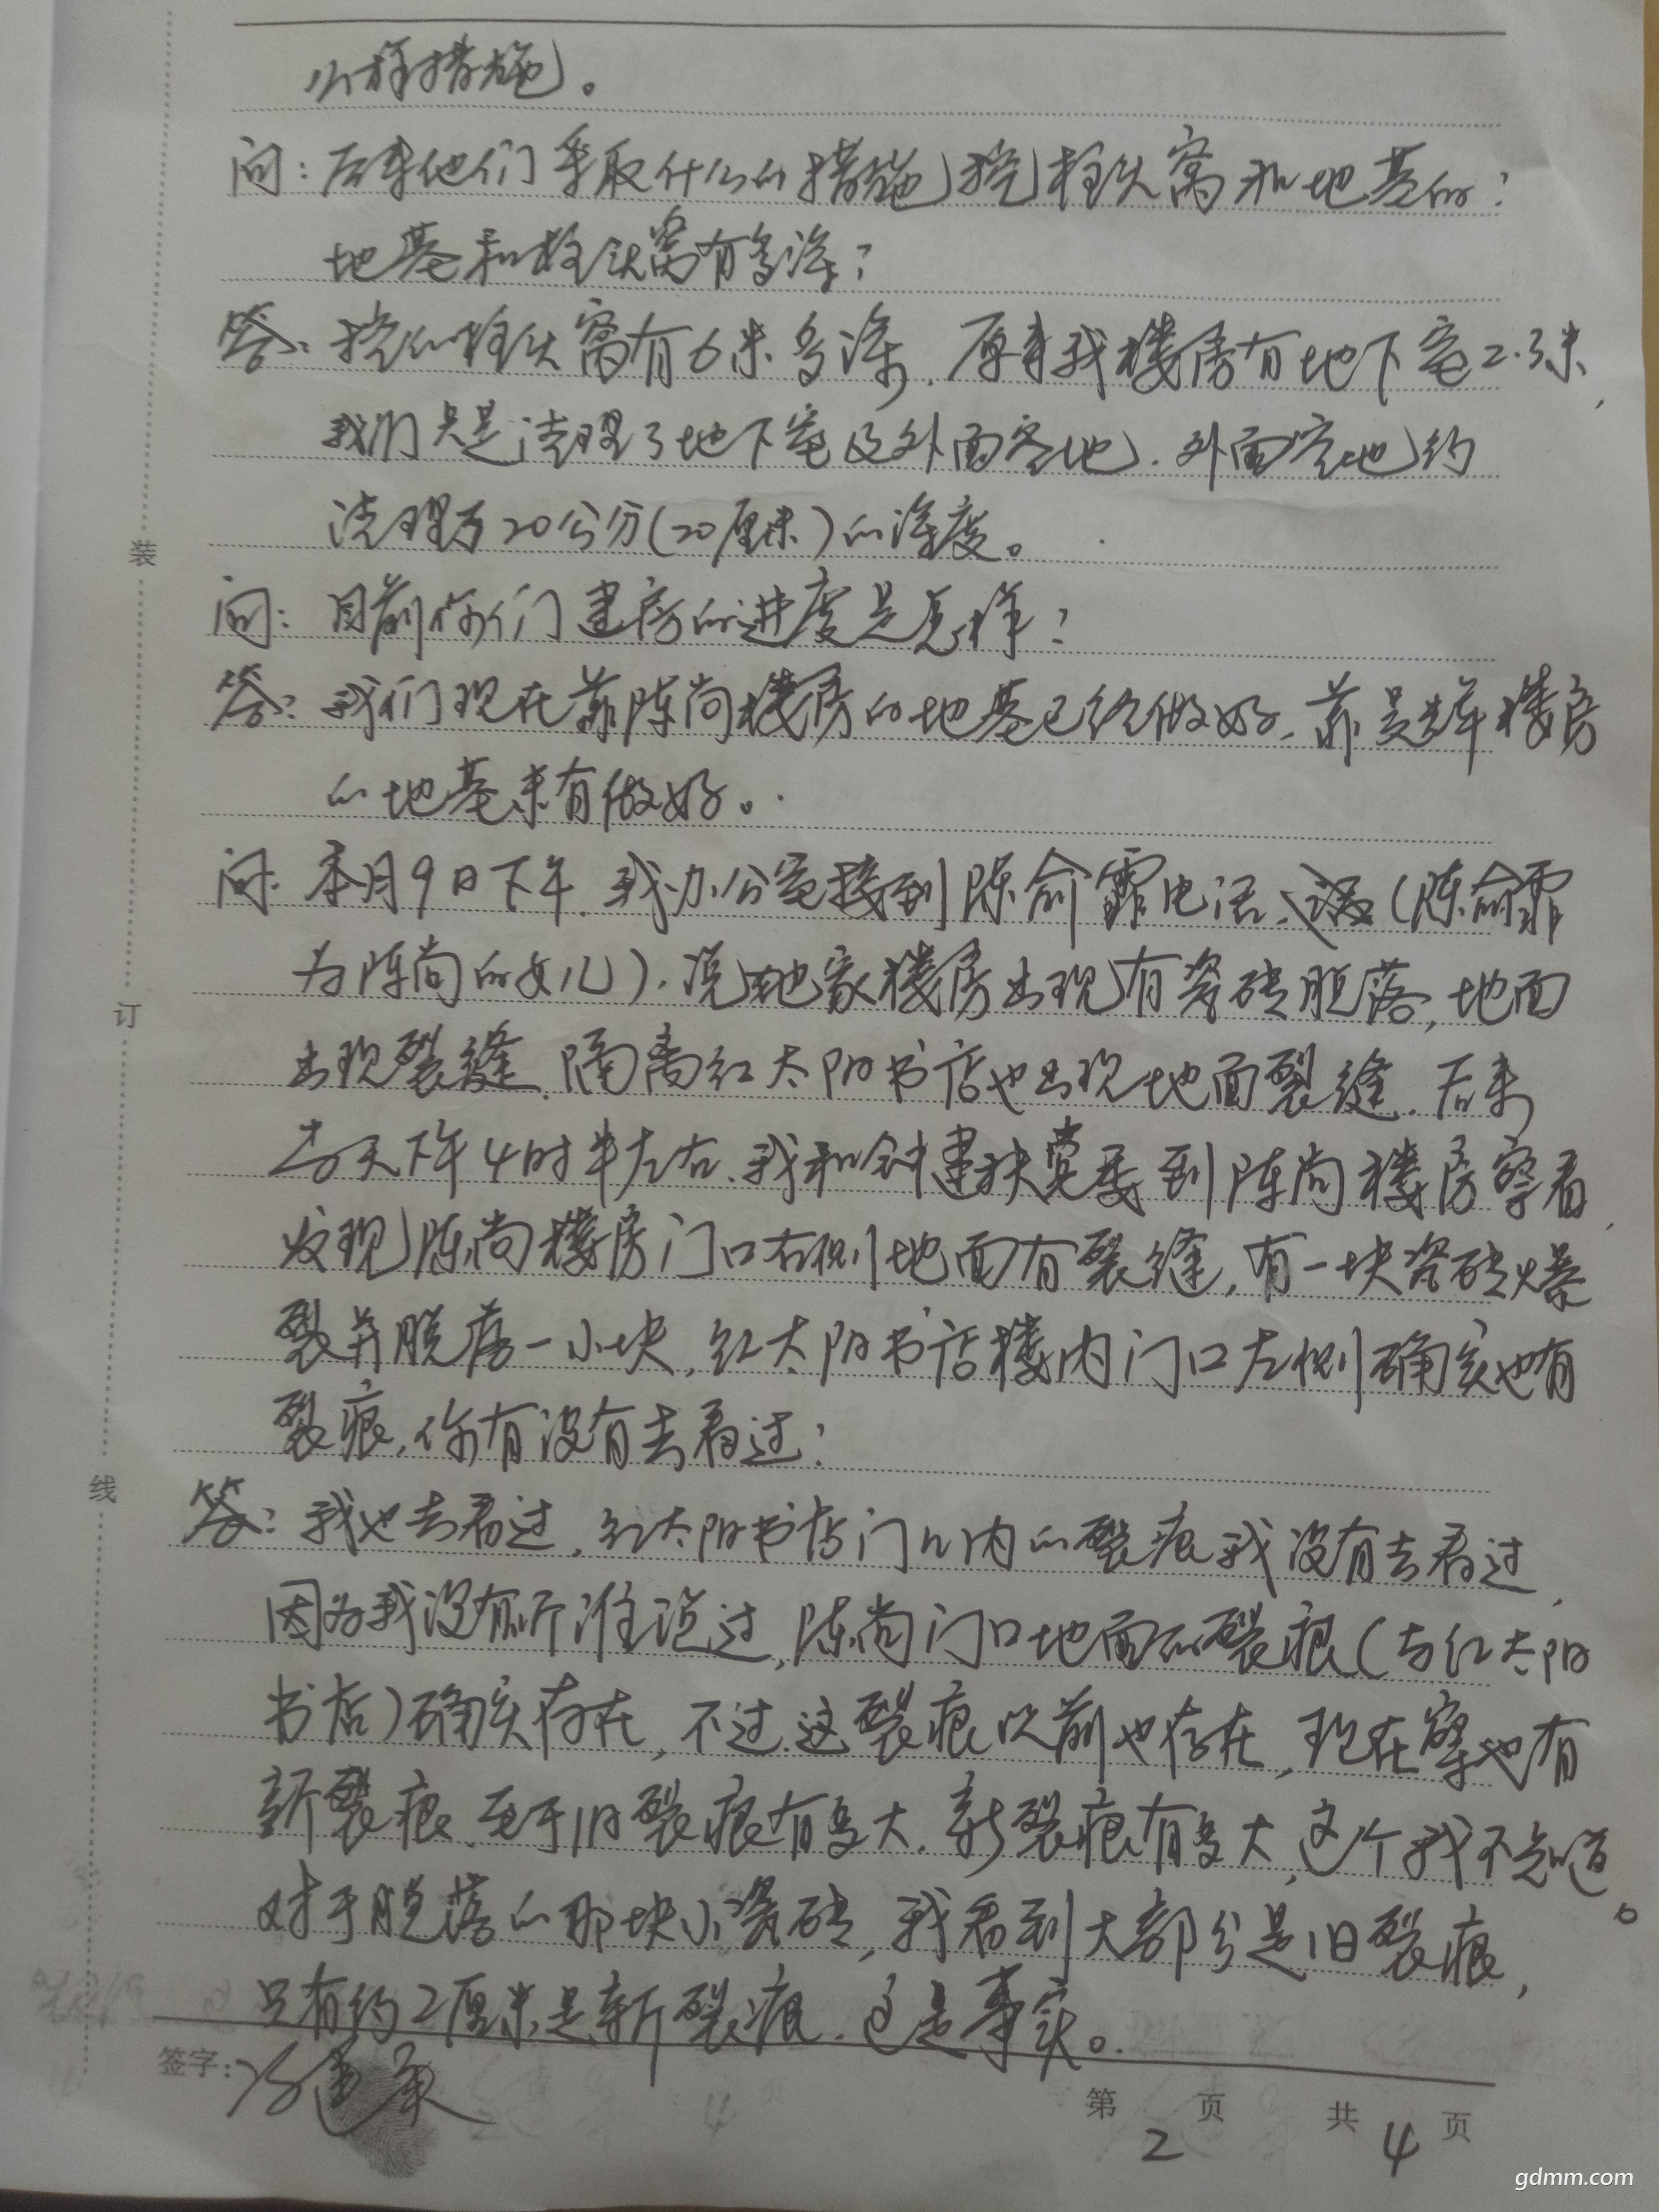 么样措施。
问：后来他们采取什么的措施挖柱头窝和地基的？
地基和柱头窝有多深？
答：挖的柱头窝有6米多深，原来我楼房有地下室2.3米，
我们只是清理了地下室及外面空地，外面空地约
清理了20公分（20厘米）的深度。
问：目前你们建房的进度是怎样？
答：我们现在靠陈尚楼房的地基已经做好，靠吴辉楼房
的地基未有做好。
问：本月9日下午，我办公室接到陈俞霏电话，（陈俞霏
为陈尚的女儿），说她家楼房出现有瓷砖脱落，地面
出现裂缝，隔离红太阳书店也出现地面裂缝，后来
当天下午4时半左右，我和钟建扶党委到陈尚楼房察看，
发现陈尚楼房门口右侧地面有裂缝，有一块瓷砖爆
裂并脱落一小块，红太阳书店楼内门口左侧确实也有
裂痕，你有没有去看过？
答：我也去看过，红太阳书店门口内的裂痕我没有去看过，
因为我没有听谁说过，陈尚门口地面的裂痕（与红太阳
书店）确实存在，不过这裂痕以前也存在，现在也有
新裂痕，至于旧裂痕有多大，新裂痕有多大，这个我不知道。
对于脱落的那块小瓷砖，我看到大部分是旧裂痕，
只有约2厘米是新裂痕，这是事实。
装
订
线
签字：
第2页 共4页
gdmm.com